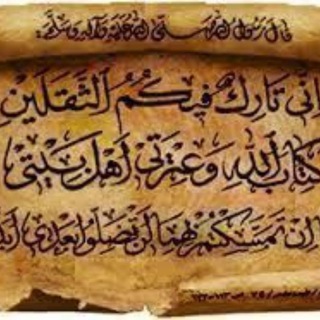 قال رسول الله صلى الله عليه وآله وسلم:
انی تارك فيكم الثقلين
كتاب الله وعترتي أهل بيتي
ان تمسكتم بهما لن تضلوا بعدي